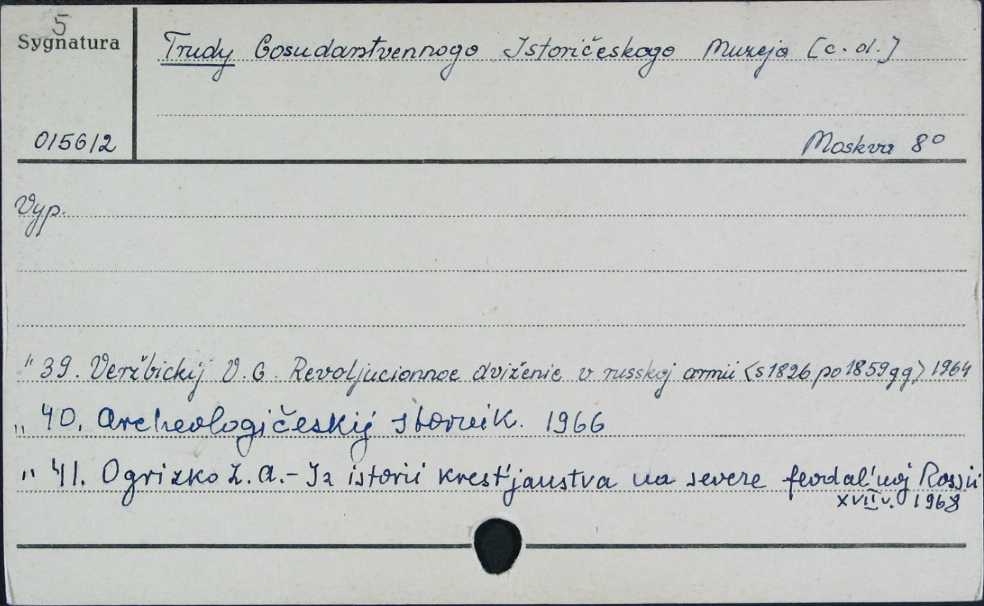 5
Sygnatura
Trudy Gosudarstvennogo Istoričeskogo Muzeja [c. d.]
015612
Moskva 8°
Vyp.
" 39. Veržbickij V. G. Revoljucionnoe dviženie v russkoj armii (s 1826 po 1859 gg) 1964
„ 40. Archeologičeskij sbornik. 1966
" 41. Ogrizko Z. A. - Iz istorii krest'janstva na severe feodal'noj Rossii
XVII v. 1968